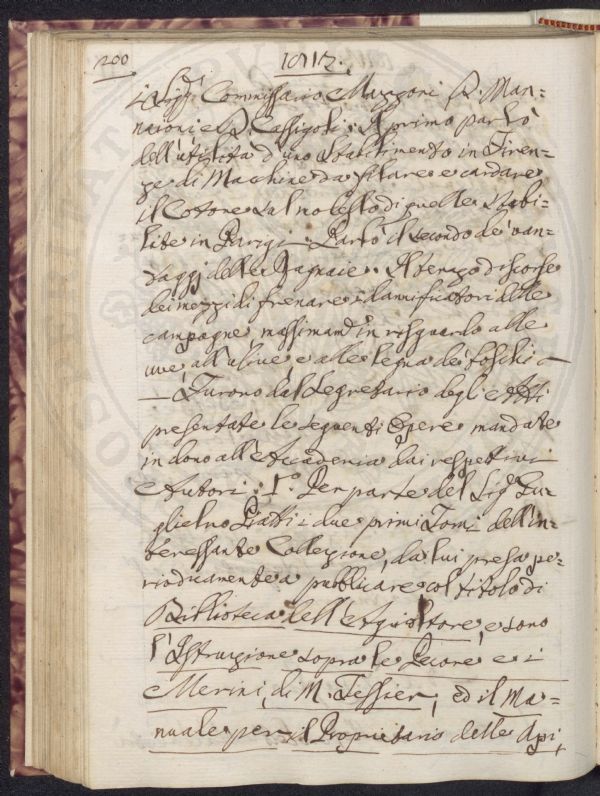 200
1812.
i Sig.ri Commissario Mazzoni D. Man=
naioni e D. Cassigoli: Il primo parlò
dell'utilità d'uno Stabilimento in Firen=
ze di Macchine da filare e cardare
il Cotone sul modello di quelle stabi=
lite in Parigi. Parlò il secondo de' van=
taggj delle Ragnaie. Il terzo discorse
dei mezzi di frenare i dannificatori delle
campagne massimam.te in risguardo alle
uve, all'ulive, e alle legna dei boschi —
— Furono dal Segretario degli Atti
presentate le seguenti Opere mandate
in dono all'Accademia dai respettivi
Autori: 1.° Per parte del Sig.r Gu=
glielmo Piatti i due primi Tomi dell'in=
teressante Collezione, da lui presa pe=
riodicamente a pubblicare col titolo di
Biblioteca dell'Agricoltore, e sono
l'Istruzione sopra le Pecore e i
Merini, di M. Tessier, ed il Ma=
nuale per il Proprietario delle Api,